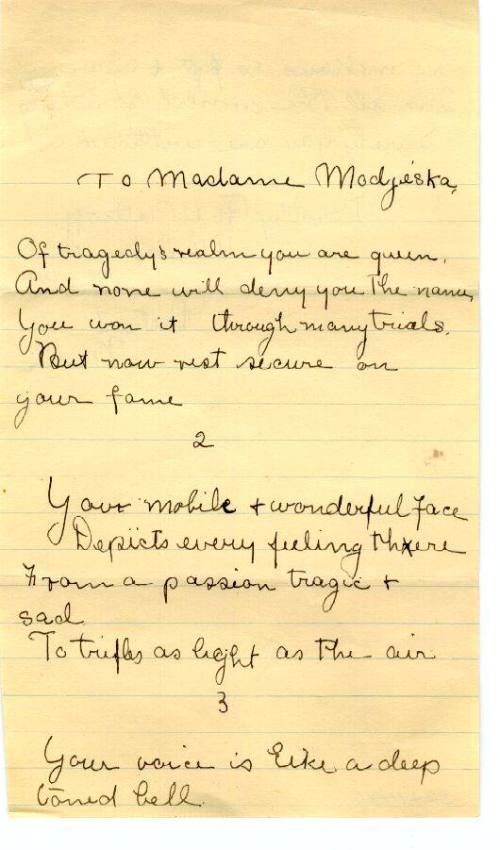 To Madame Modjeska,
Of tragedy's realm you are queen,
And none will deny you the name,
You won it through many trials.
But now rest secure on
your fame
2
Your mobile + wonderful face
Depicts every feeling there
From a passion tragic +
sad
To trifles as light as the air
3
Your voice is like a deep
toned bell.